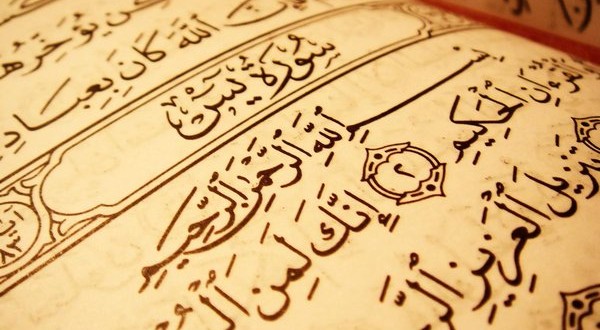 ن يُؤَخِّرُهُ
ٱللَّهَ كَانَ بِعِبَادِ
سُورَةُ يسٓ
بِسۡمِ ٱللَّهِ ٱلرَّحۡمَٰنِ ٱلرَّحِيمِ
ٱلۡقُرۡءَانِ ٱلۡحَكِيمِ ٢ إِنَّكَ لَمِنَ ٱلۡمُ
تَنزِيلَ ٱلۡعَزِيزِ ٱلرَّ